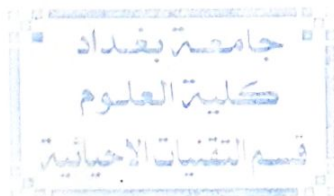 جامعة بغداد
كلية العلوم
قسم التقنيات الاحيائية